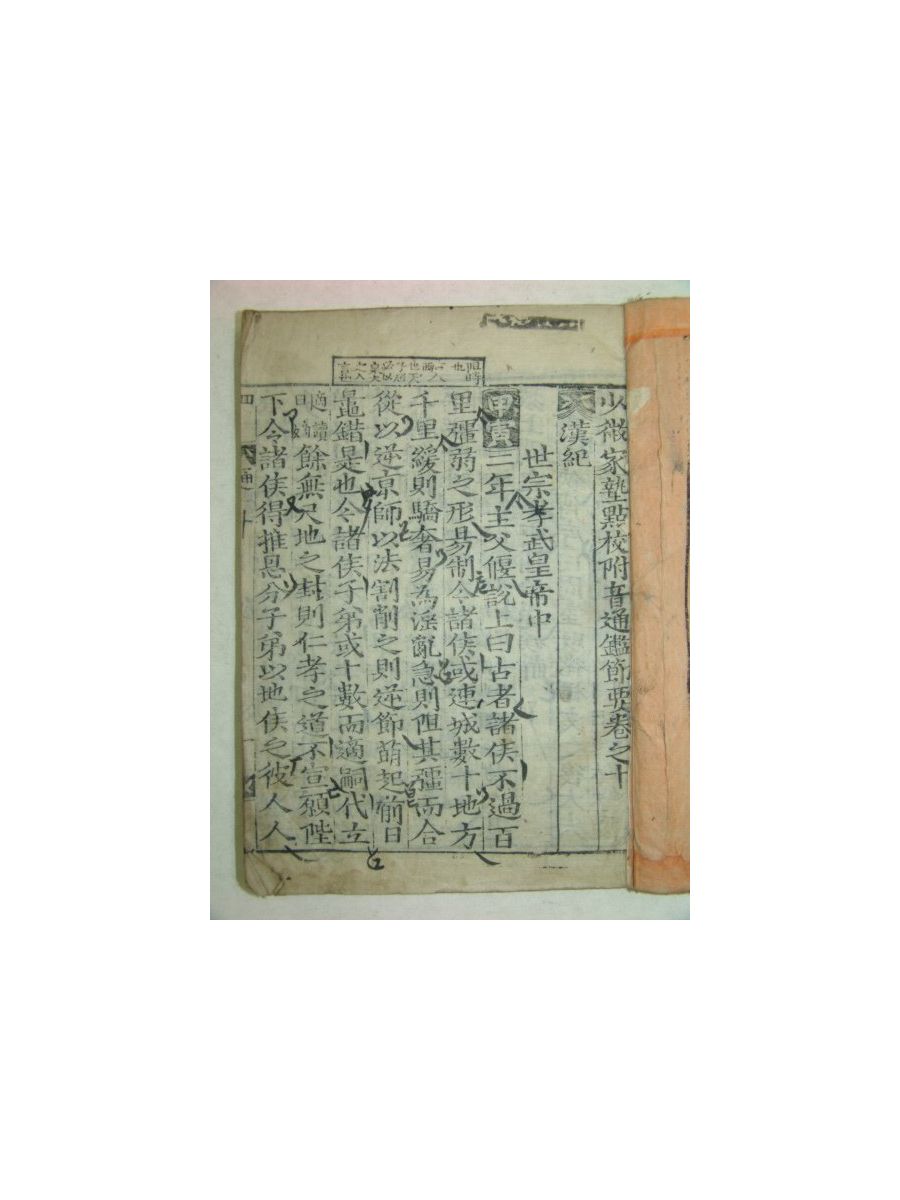 少微家塾點校附音通鑑節要卷之十
漢紀
世宗孝武皇帝中
甲寅二年主父偃說上曰古者諸侯不過百
里彊弱之形易制今諸侯或連城數十地方
千里緩則驕奢易為淫亂急則阻其彊而合
從以逆京師以法割削之則逆節萌起前日
鼂錯是也今諸侯子弟或十數而適嗣代立
適讀曰嫡餘無尺地之封則仁孝之道不宣願陛
下令諸侯得推恩分子弟以地侯之彼人人